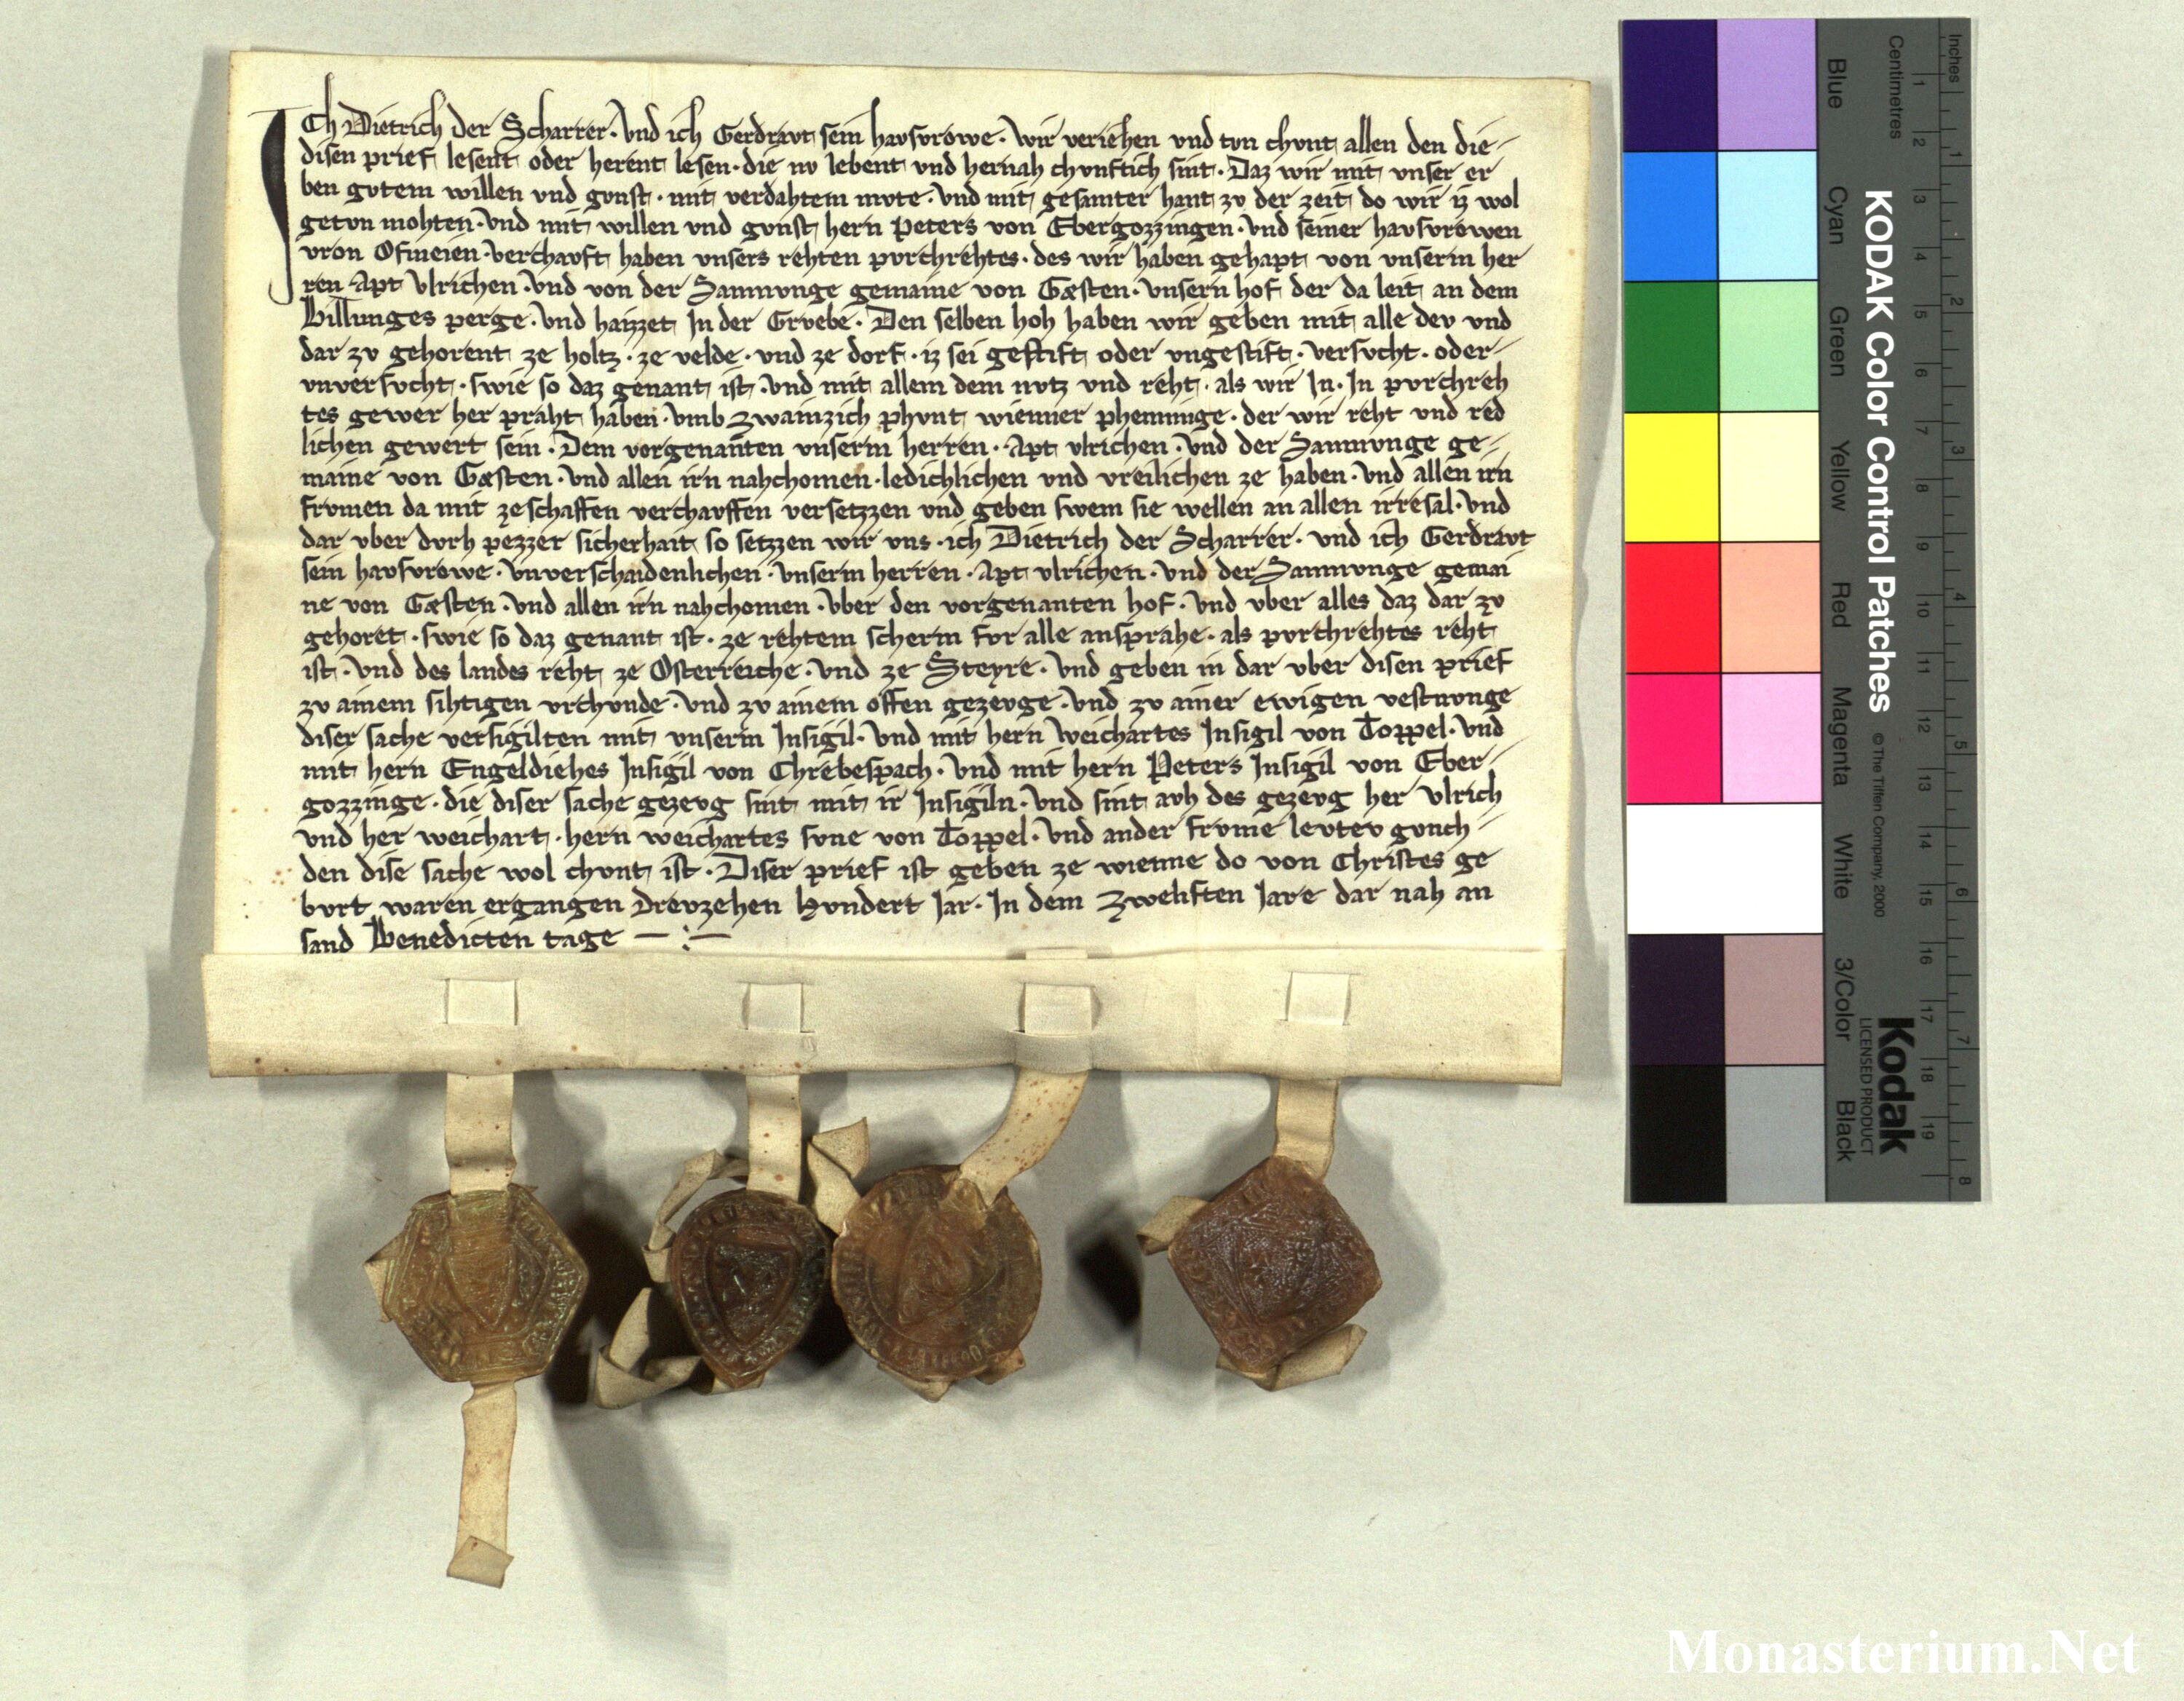 Ich Dietrich der Scharrer · Vnd ich Gerdravt sein havsvrowe · Wir veriehen vnd tvn chvnt allen den die-
disen prief lesent oder herent lesen · die nv lebent vnd hernah chvnftich sint · Daz wir mit vnser er
ben gvtem willen vnd gvnst · mit verdahtem mvte · Vnd mit gesamter hant zv der zeit do wir iz wol
getvn mohten · Vnd mit willen vnd gvnst hern Peters von Ebergozzingen · Vnd seiner havsvrowen
vron Ofmeien · Verchavft haben vnsers rehten pvrchrehtes · des wir haben gehapt von vnserm her
ren Apt Vlrichen · Vnd von der Samnvnge gemaine von Gæsten · Vnsern hof der da leit an dem
Billunges perge · Vnd haizzet In der Grvebe · Den selben hoh haben wir geben mit alle dev vnd
dar zv gehorent ze holtz · ze velde · vnd ze dorf · iz sei gestift oder vngestift · Versvcht · oder-
vnversvcht · swie so daz genant ist · Vnd mit allem dem nvtz vnd reht · als wir In · In pvrchreh
tes gewer her praht haben · Vmb zwainzich phvnt wienner phenninge · der wir reht vnd red
lichen gewert sein · Dem vorgenanten vnserm herren · Apt vlrichen · Vnd der Samnvnge ge-
maine von Gæsten · Vnd allen irn nahchomen · ledichlichen vnd vreilichen ze haben · Vnd allen irn
frvmen da mit ze schaffen verchavffen versetzzen vnd geben swem sie wellen an allen irresal · Vnd
dar vber dvrh pezzer sicherhait so setzzen wir vns · ich Dietrich der Scharrer · Vnd ich Gerdravt
sein havsvrowe · Vnverschaidenlichen · Vnserm herren · Apt vlrichen · Vnd der Samnvnge gemai
ne von Gæsten · Vnd allen irn nahchomen · Vber den vorgenanten hof · Vnd vber alles daz dar zv
gehoret · swie so daz genant ist · ze rehtem scherm fvr alle ansprahe · als pvrchrehtes reht
ist · Vnd des landes reht ze Osterreiche · Vnd ze Steyre · Vnd geben in dar vber disen prief
zv ainem sihtigen vrchvnde · Vnd zv ainem offen gezevge · Vnd zv ainer ewigen vestnvnge
diser sache versigilten mit vnserm Insigil · Vnd mit hern Weichartes Insigil von Toppel · Vnd
mit hern Engeldiehes Insigil von Chrebespach · Vnd mit hern Peters Insigil von Eber-
gozzinge · die diser sache gezevg sint mit ir Insigiln · Vnd sint avh des gezevg her Vlrich
vnd her weichart · hern weichartes svne von Toppel · Vnd ander frvme levtev gvnch-
den dise sache wol chvnt ist · Diser prief ist geben ze wienne do von Christes ge
bvrt waren ergangen Drevzehen Hvndert Jar · In dem Zwelften Jare dar nah an
sand Benedicten tage
KODAK Color Control Patches
© The Tiffen Company, 2000
Kodak
LICENSED PRODUCT
Blue
Cyan
Green
Yellow
Red
Magenta
White
3/Color
Black
Centimetres
1 2 3 4 5 6 7 8 9 10 11 12 13 14 15 16 17 18 19
Inches
1 2 3 4 5 6 7 8
Monasterium.Net